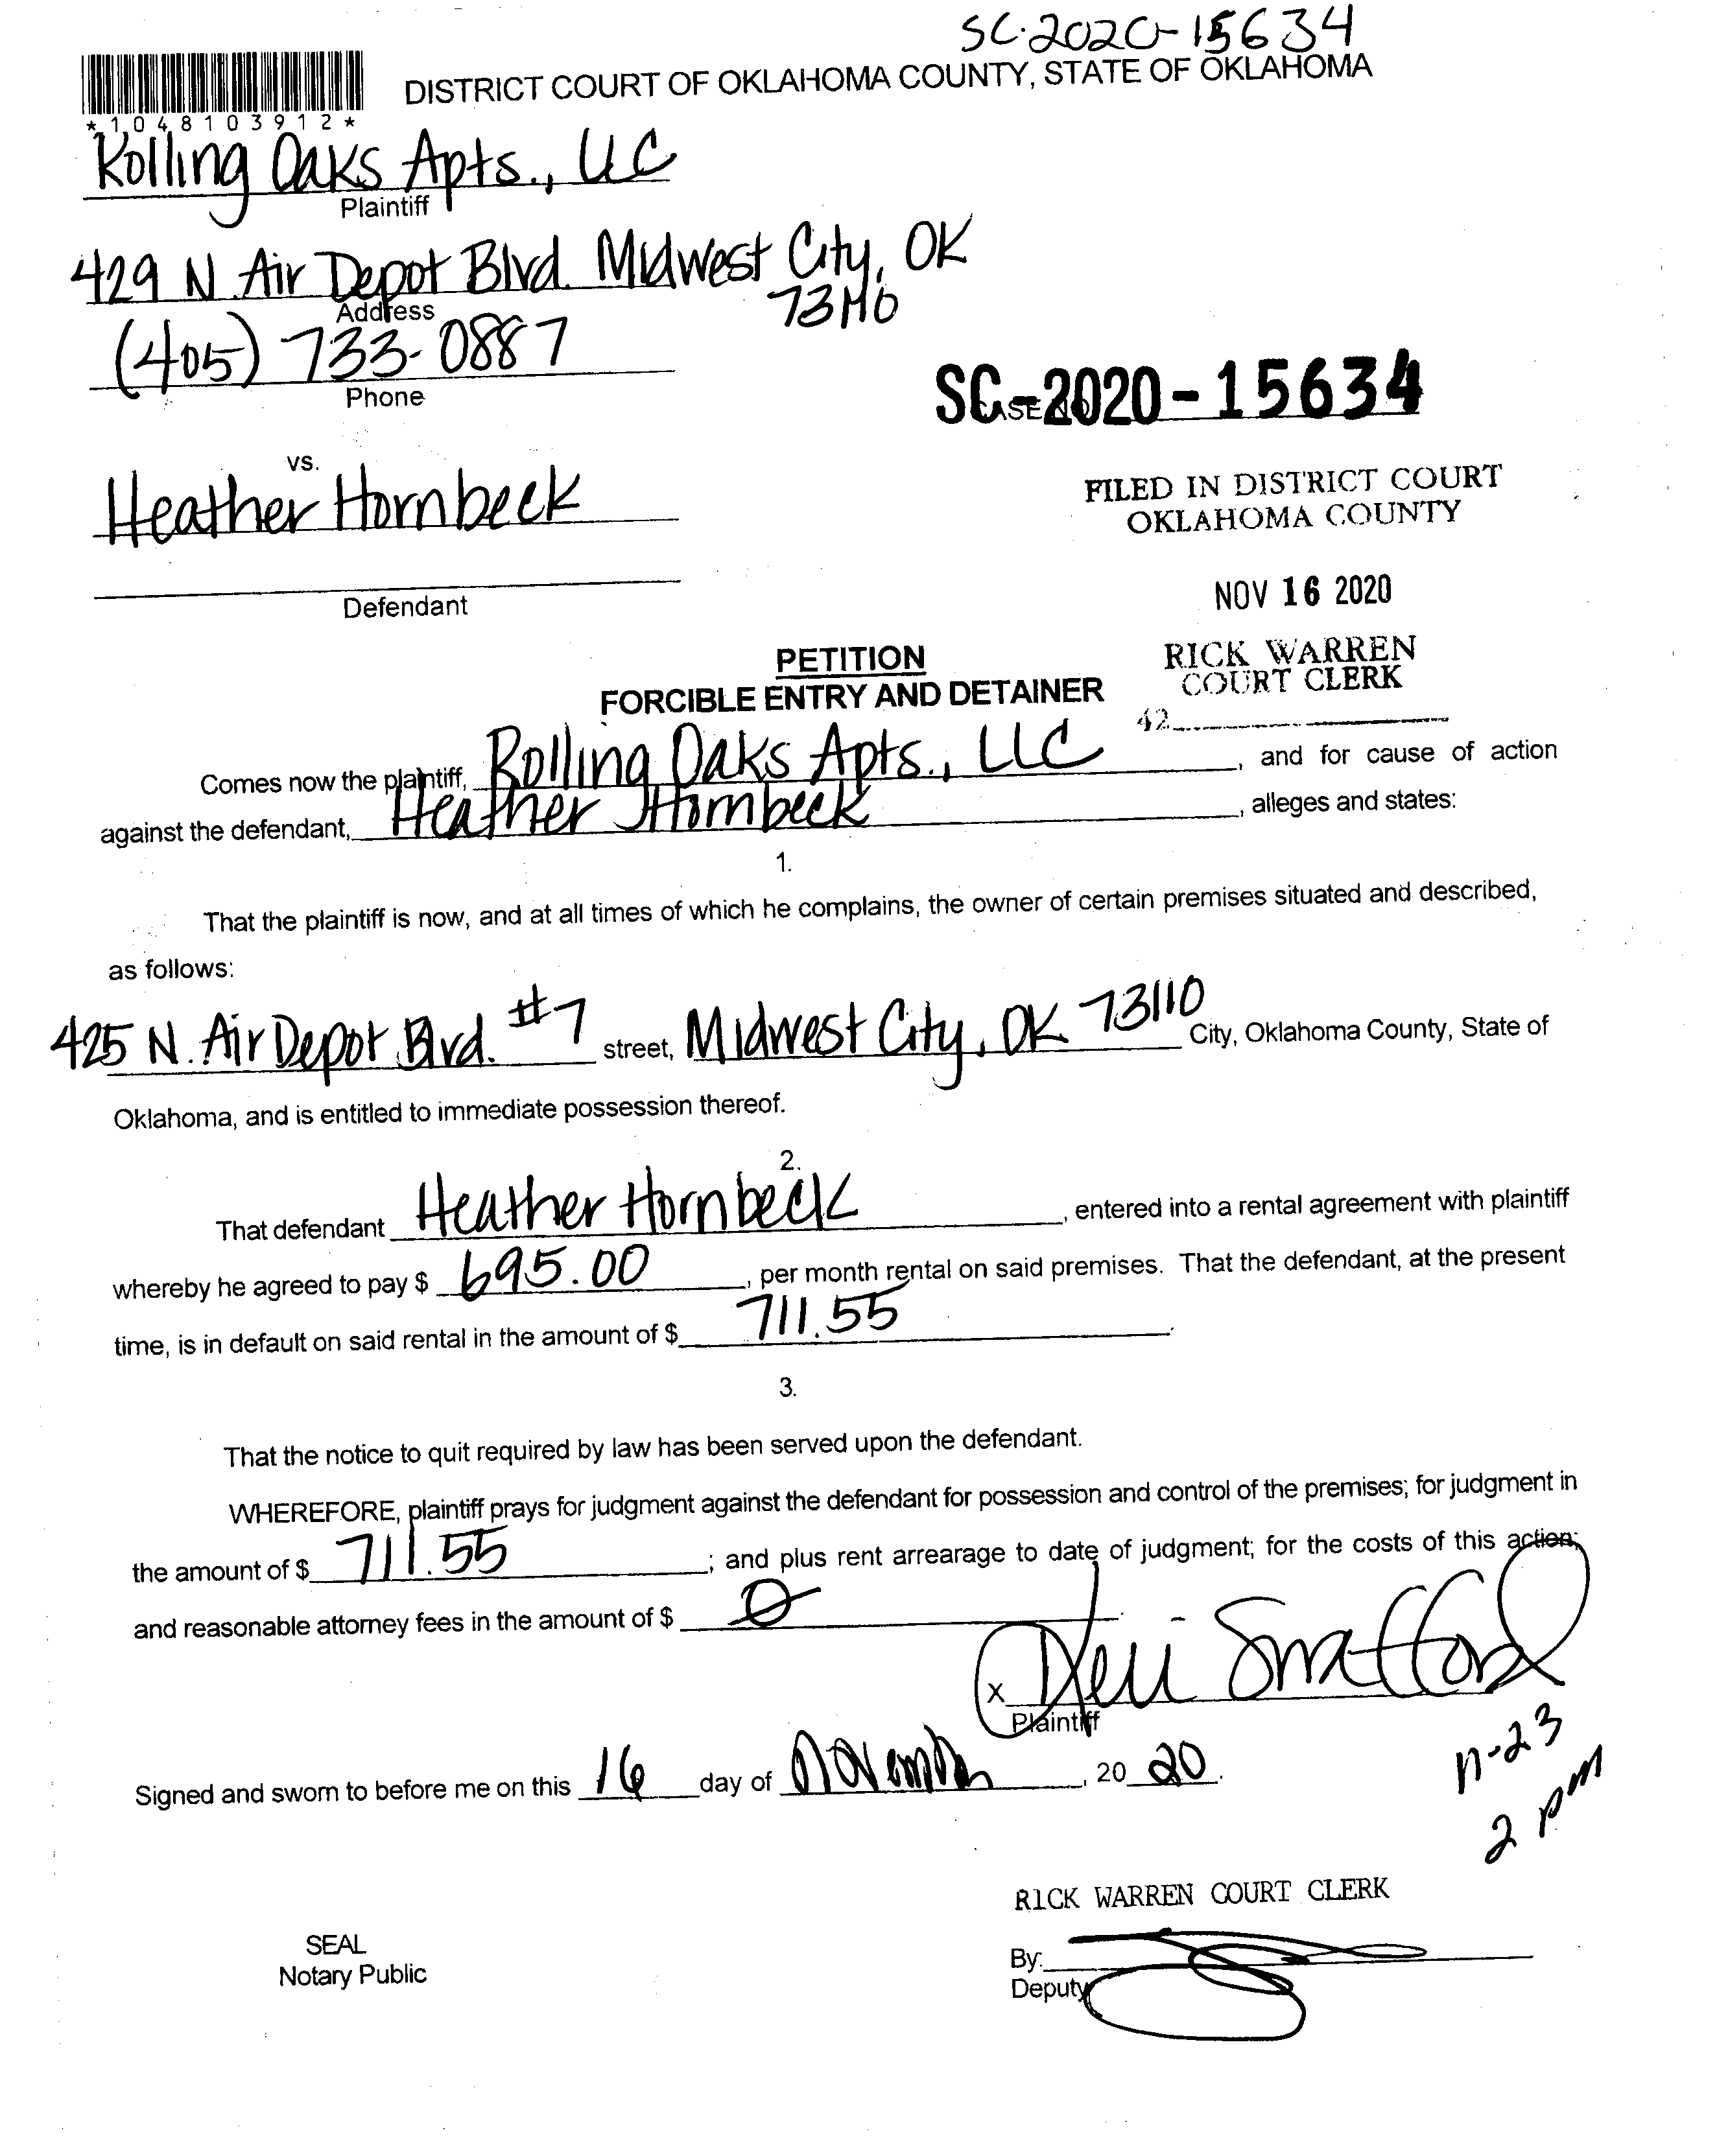 SC-2020-15634
DISTRICT COURT OF OKLAHOMA COUNTY, STATE OF OKLAHOMA
*1048103912*
Rolling Oaks Apts., LLC
Plaintiff
429 N. Air Depot Blvd. Midwest City, OK
73110
Address
(405) 733-0887
Phone
SC-2020-15634
CASE NO
vs.
Heather Hornbeck
FILED IN DISTRICT COURT
OKLAHOMA COUNTY
Defendant
NOV 16 2020
PETITION
FORCIBLE ENTRY AND DETAINER
RICK WARREN
COURT CLERK
42
Comes now the plaintiff, Rolling Oaks Apts., LLC, and for cause of action
against the defendant, Heather Hornbeck, alleges and states:
1.
That the plaintiff is now, and at all times of which he complains, the owner of certain premises situated and described,
as follows:
425 N. Air Depot Blvd. #7 street, Midwest City, OK 73110 City, Oklahoma County, State of
Oklahoma, and is entitled to immediate possession thereof.
2.
That defendant Heather Hornbeck, entered into a rental agreement with plaintiff
whereby he agreed to pay $ 695.00, per month rental on said premises. That the defendant, at the present
time, is in default on said rental in the amount of $ 711.55.
3.
That the notice to quit required by law has been served upon the defendant.
WHEREFORE, plaintiff prays for judgment against the defendant for possession and control of the premises; for judgment in
the amount of $ 711.55; and plus rent arrearage to date of judgment; for the costs of this action;
and reasonable attorney fees in the amount of $ 0.
X
Plaintiff
Signed and sworn to before me on this 16 day of November, 20 20.
11-23
2 pm
RICK WARREN COURT CLERK
SEAL
Notary Public
By:
Deputy